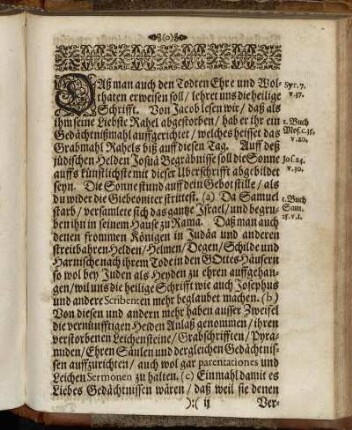 (o)
DAß man auch den Todten Ehre und Wol-
thaten erweisen soll / lehret uns die heilige
Schrifft. Von Jacob lesen wir / daß als
ihm seine Liebste Rahel abgestorben / hab er ihr ein
Gedächtnißmahl auffgerichtet / welches heisset das
Grabmahl Rahels biß auff diesen Tag. Auff deß
jüdischen Helden Josuä Begräbnüße soll die Sonne
auffs künstlichste mit dieser Uberschrifft abgebildet
seyn. Die Sonne stund auff dein Gebot stille / als
du wider die Giebeoniter strittest. (a) Da Samuel
starb / versamlete sich das gantze Israel / und begru-
ben ihn in seinem Hause zu Rama. Daß man auch
denen frommen Königen in Judäa und anderen
streitbahren Helden / Helmen / Degen / Schilde und
Harnische nach ihrem Tode in den GOttes Häusern
so wol bey Juden als Heyden zu ehren auffgehan-
gen / wil uns die heilige Schrifft wie auch Josephus
und andere Scribenten mehr beglaubet machen. (b)
Von diesen und andern mehr haben ausser Zweifel
die vernünfftigen Heiden Anlaß genommen / ihren
verstorbenen Leichensteine / Grabschrifften / Pyra-
miden / Ehren Säulen und dergleichen Gedächtnis-
sen auffzurichten / auch wol gar parentationes und
Leichen Sermonen zu halten. (c) Einmahl damit es
Liebes Gedächtnissen wären / daß weil sie denen
):( ij Ver-
Syr. 7.
v. 37.
1. Buch
Mos. c. 35.
v. 20.
Jos. 24.
v. 30.
1. Buch
Sam.
25. v. 1.